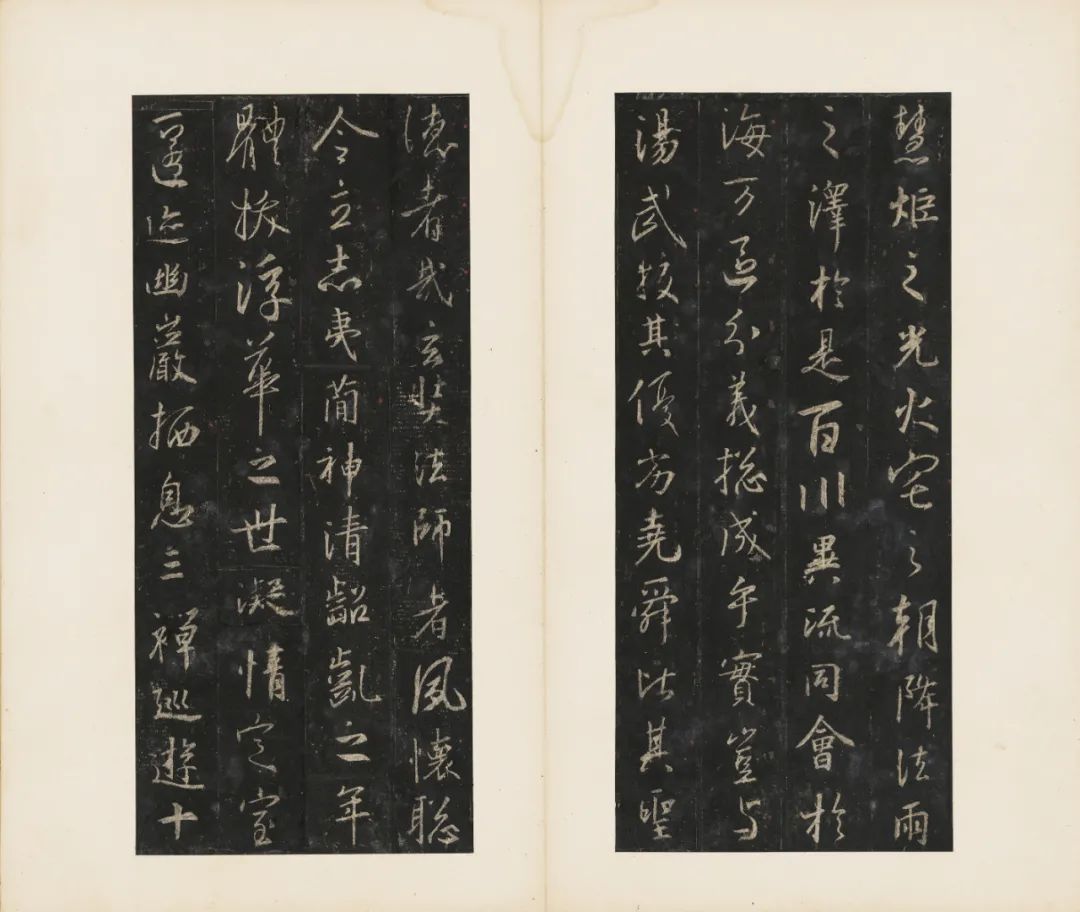 慧炬之光火宅之朝降法雨
之澤於是百川異流同會於
海万區分義揔成乎實豈與
湯武挍其優劣堯舜比其聖
德者哉玄奘法師者夙懷聡
令立志夷簡神清齠齓之年
體拔浮華之世凝情定室
匿迹幽巖栖息三禅巡遊十